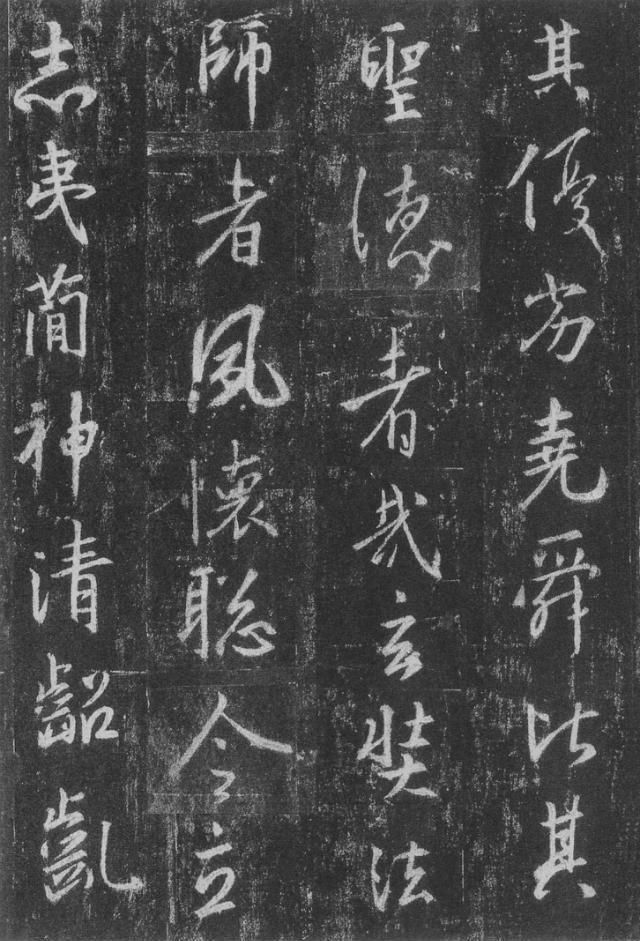 其優劣堯舜比其
聖德者哉玄奘法
師者夙懷聰令立
志夷簡神清齠齔